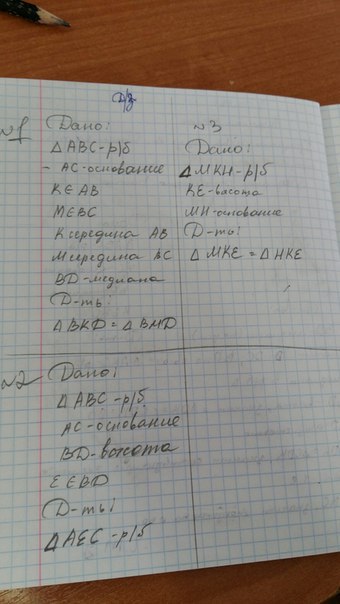 Д/з
№1
Дано:
△ABC-р/б
- AC-основание
K∈AB
M∈BC
K середина AB
M середина BC
BD-медиана
D-ть:
△BKD=△BMD
№3
Дано:
△MKH-р/б
KE-высота
MH-основание
D-ть:
△MKE=△HKE
№2
Дано:
△ABC-р/б
AC-основание
BD-высота
E∈BD
D-ть:
△AEC-р/б